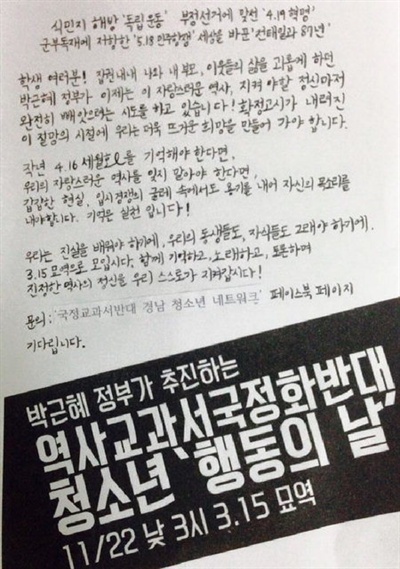 식민지 해방 '독립운동' 부정선거에 맞선 '4.19혁명'
군부독재에 저항한 '5.18 민주항쟁' 세상을 바꾼 '전태일과 87년'
학생 여러분! 집권내내 나와 내 부모, 이웃들의 삶을 괴롭게 하던
박근혜 정부가 이제는 이 자랑스러운 역사, 지켜야할 정신마저
완전히 빼앗으려는 시도를 하고 있습니다! 확정고시가 내려진
이 절망의 시절에 우리는 더욱 뜨거운 희망을 만들어 가야 합니다.
작년 4.16 세월호를 기억해야 한다면,
우리의 자랑스러운 역사를 잊지 말아야 한다면,
갑갑한 현실, 입시경쟁의 굴레 속에서도 용기를 내어 자신의 목소리를
내야합니다. 기억은 실천입니다!
우리는 진실을 배워야 하기에, 우리의 동생들도, 자식들도 그래야 하기에.
3.15묘역으로 모입시다. 함께 기억하고, 노래하고, 토론하며
진정한 역사의 정신을 우리 스스로가 지켜갑시다!
문의: '국정교과서반대 경남 청소년 네트워크' 페이스북 페이지
기다립니다.
박근혜 정부가 추진하는
역사교과서국정화반대
청소년 '행동의 날'
11/22 낮 3시 3.15 묘역